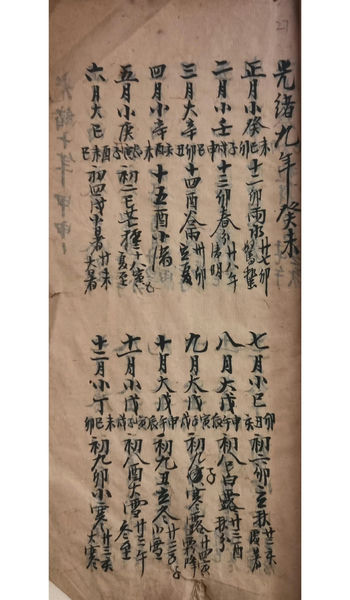 27
光緒九年癸未
正月小癸 未巳卯 十二卯雨水 廿七卯驚蟄
二月小壬 子戌申 十三卯春分 廿八午清明
三月大辛 巳卯丑 十四酉谷雨 卅卯立夏
四月小辛 亥酉未 十五酉小滿
五月小庚 辰寅子 初二巳芒種 十八寅夏至
六月大己 酉未巳 初四戌小暑 廿未大暑
七月小己 卯丑亥 初六卯立秋 廿一亥處暑
八月大戊 申午辰 初八巳白露 廿三酉秋分
九月大戊 寅子戌 初九子寒露 廿四寅霜降
十月大戊 申午辰 初九丑立冬 廿三子小雪
十一月小戊 寅子戌 初八酉大雪 廿三午冬至
十二月小丁 未巳卯 初九卯小寒 廿三亥大寒
光緒十年甲申